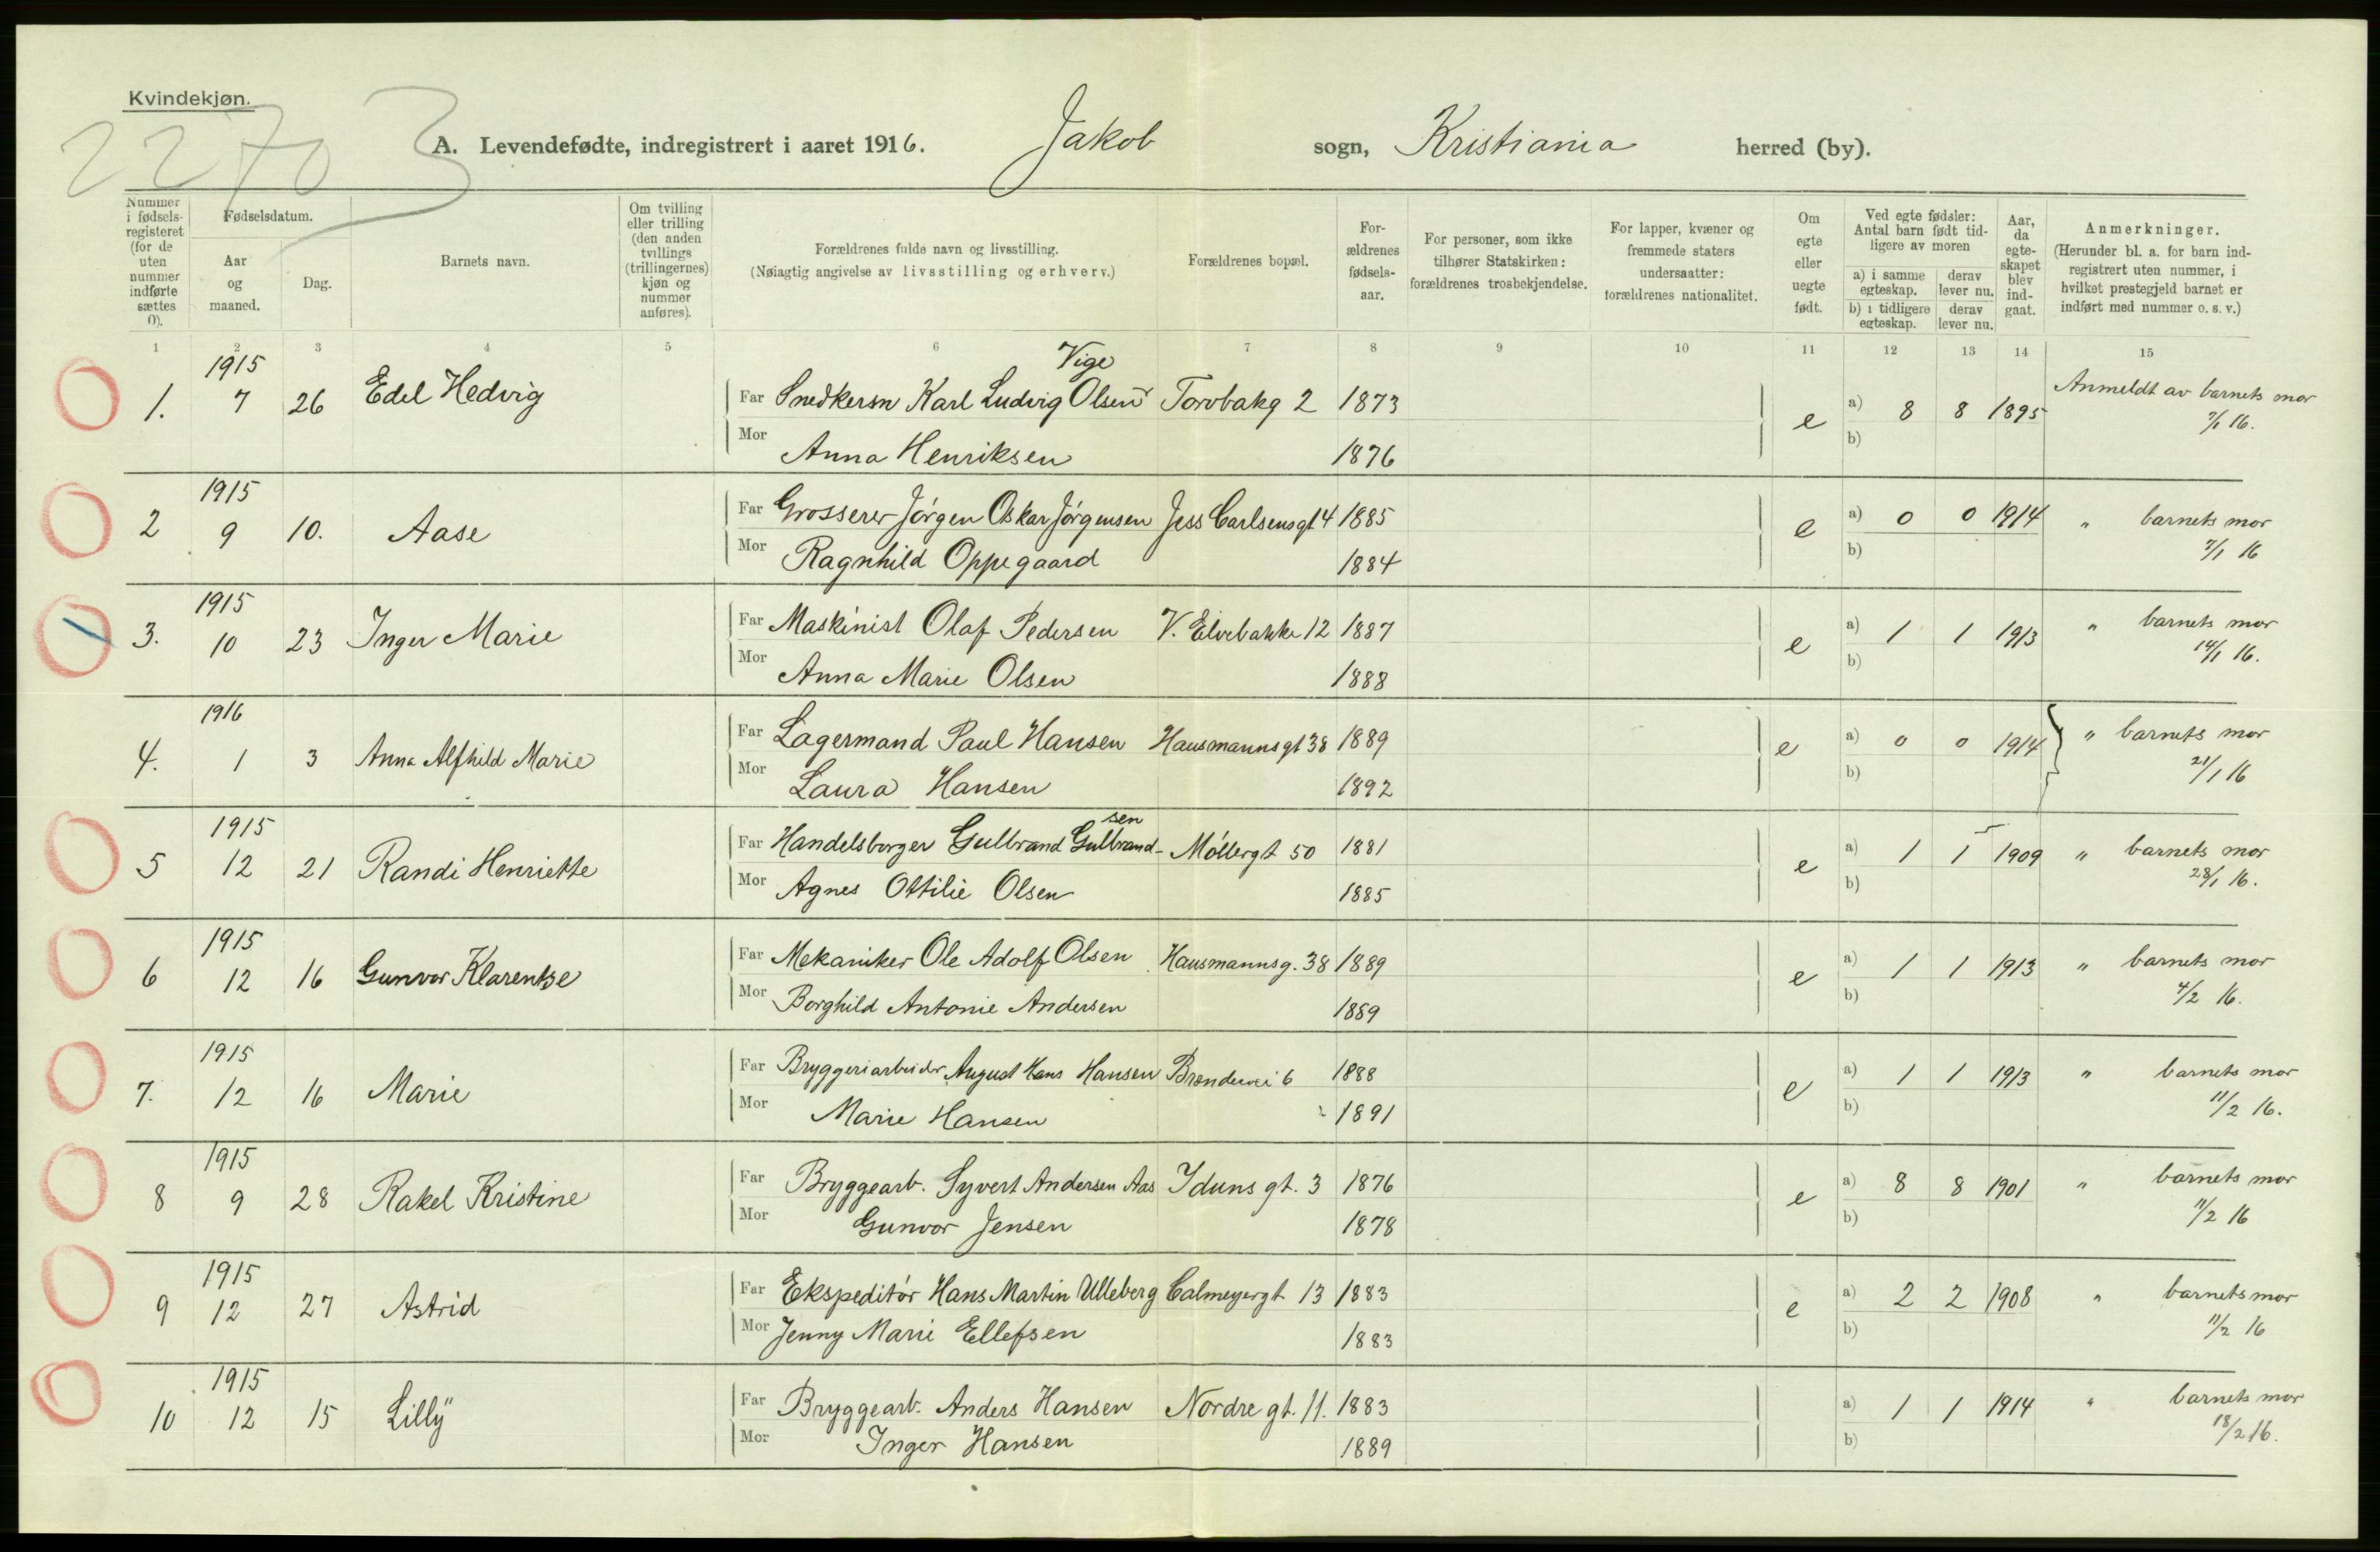 Kvindekjøn.
2270 3
A. Levendefødte, indregistrert i aaret 1916. Jakob sogn, Kristiania herred (by).
Nummer i fødsels-registeret (for de uten nummer indførte sættes 0).
Fødselsdatum.
Aar og maaned.
Dag.
Barnets navn.
Om tvilling eller trilling (den anden tvillings (trillingernes) kjøn og nummer anføres).
Forældrenes fulde navn og livsstilling.
(Nøiagtig angivelse av livsstilling og erhverv.)
Forældrenes bopæl.
For-ældrenes fødsels-aar.
For personer, som ikke tilhører Statskirken: forældrenes trosbekjendelse.
For lapper, kvæner og fremmede staters undersaatter: forældrenes nationalitet.
Om egte eller uegte født.
Ved egte fødsler: Antal barn født tid-ligere av moren
a) i samme egteskap. derav lever nu.
b) i tidligere egteskap. derav lever nu.
Aar, da egte-skapet blev ind-gaat.
Anmerkninger.
(Herunder bl. a. for barn ind-registrert uten nummer, i hvilket prestegjeld barnet er indført med nummer o. s. v.)
1 2 3 4 5 6 7 8 9 10 11 12 13 14 15
1915 Vige
1. 7 26 Edel Hedvig Far Snedkersn Karl Ludvig Olsen Torvbakg 2 1873 e a) 8 8 1895 Anmeldt av barnets mor
Mor Anna Henriksen 1876 b) 7/1 16.
1915
2 9 10. Aase Far Grosserer Jørgen Oskar Jørgensen Jess Carlsensgt 4 1885 e a) 0 0 1914 " barnets mor
Mor Ragnhild Oppegaard 1884 b) 7/1 16
1915
3. 10 23 Inger Marie Far Maskinist Olaf Pedersen V. Elvebakke 12 1887 e a) 1 1 1913 " barnets mor
Mor Anna Marie Olsen 1888 b) 14/1 16.
1916
4. 1 3 Anna Alfhild Marie Far Lagermand Paul Hansen Hausmannsgt 38 1889 e a) 0 0 1914 " barnets mor
Mor Laura Hansen 1892 b) 21/1 16
1915 sen
5 12 21 Randi Henriette Far Handelsborger Gulbrand Gulbrand- Møllergt 50 1881 e a) 1 1 1909 " barnets mor
Mor Agnes Ottilie Olsen 1885 b) 28/1 16.
1915
6 12 16 Gunvor Klarentse Far Mekaniker Ole Adolf Olsen Hausmannsg. 38 1889 e a) 1 1 1913 " barnets mor
Mor Borghild Antonie Andersen 1889 b) 4/2 16.
1915
7. 12 16 Marie Far Bryggeriarbeider August Hans Hansen Brendervei 6 1888 e a) 1 1 1913 " barnets mor
Mor Marie Hansen 1891 b) 11/2 16.
1915
8 9 28 Rakel Kristine Far Bryggearb. Syvert Andersen Aas Iduns gt. 3 1876 e a) 8 8 1901 " barnets mor
Mor Gunvor Jensen 1878 b) 11/2 16
1915
9 12 27 Astrid Far Ekspeditør Hans Martin Ulleberg Calmeyergt 13 1883 e a) 2 2 1908 " barnets mor
Mor Jenny Marie Ellefsen 1883 b) 11/2 16
1915
10 12 15 Lilly Far Bryggearb. Anders Hansen Nordre gt. 11. 1883 a) 1 1 1914 " barnets mor
Mor Inger Hansen 1889 b) 18/2 16.